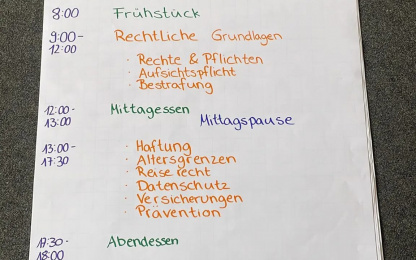 8:00 Frühstück
9:00- Rechtliche Grundlagen
12:00
· Rechte & Pflichten
· Aufsichtspflicht
· Bestrafung
12:00- Mittagessen
13:00 Mittagspause
13:00- · Haftung
17:30 · Altersgrenzen
· Reiserecht
· Datenschutz
· Versicherungen
· Prävention
17:30- Abendessen
18:00